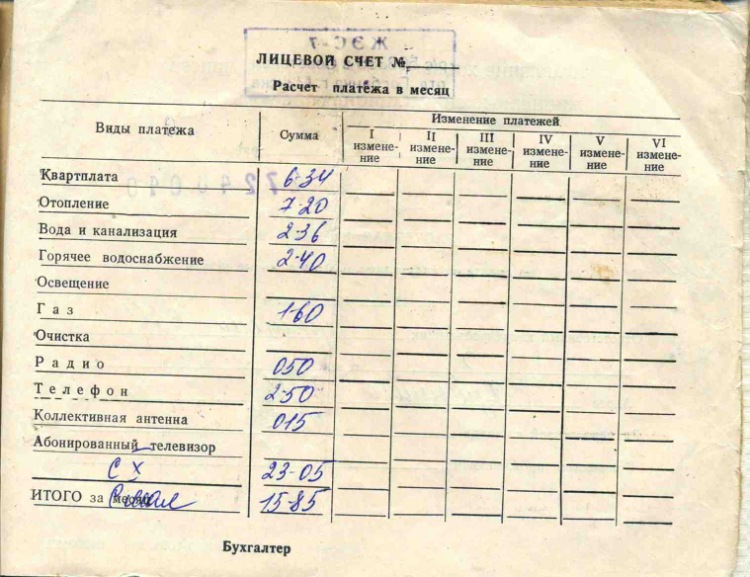 ЖЭС-7
ЛИЦЕВОЙ СЧЕТ №
Расчет платежа в месяц
Виды платежа
Сумма
Изменение платежей
I измене-
ние
II измене-
ние
III измене-
ние
IV измене-
ние
V измене-
ние
VI измене-
ние
Квартплата 6-34
Отопление 7-20
Вода и канализация 2-36
Горячее водоснабжение 2-40
Освещение
Газ 1-60
Очистка
Радио 050
Телефон 2-50
Коллективная антенна 015
Абонированный телевизор
СХ 23-05
ИТОГО за месяц 15-85
Бухгалтер